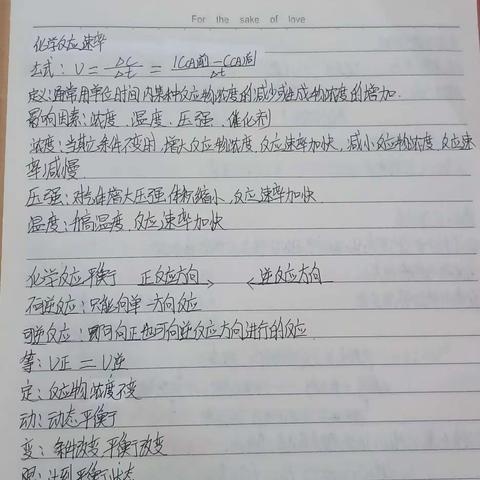 For the sake of love
化学反应速率
公式：V = Δc/Δt = |C(A)前 - C(A)后|/Δt
定义：通常用单位时间内某种反应物浓度的减少或生成物浓度的增加.
影响因素：浓度、温度、压强、催化剂
浓度：当其它条件不变时,增大反应物浓度,反应速率加快,减小反应物浓度,反应速
率减慢.
压强：对气体增大压强体积缩小,反应速率加快
温度：升高温度,反应速率加快
化学反应平衡 正反应方向→ ←逆反应方向
不可逆反应：只能向单一方向反应
可逆反应：即可向正也可向逆反应方向进行的反应.
等：V正 = V逆
定：反应物浓度不变
动：动态平衡
变：条件改变平衡改变
限：达到平衡状态